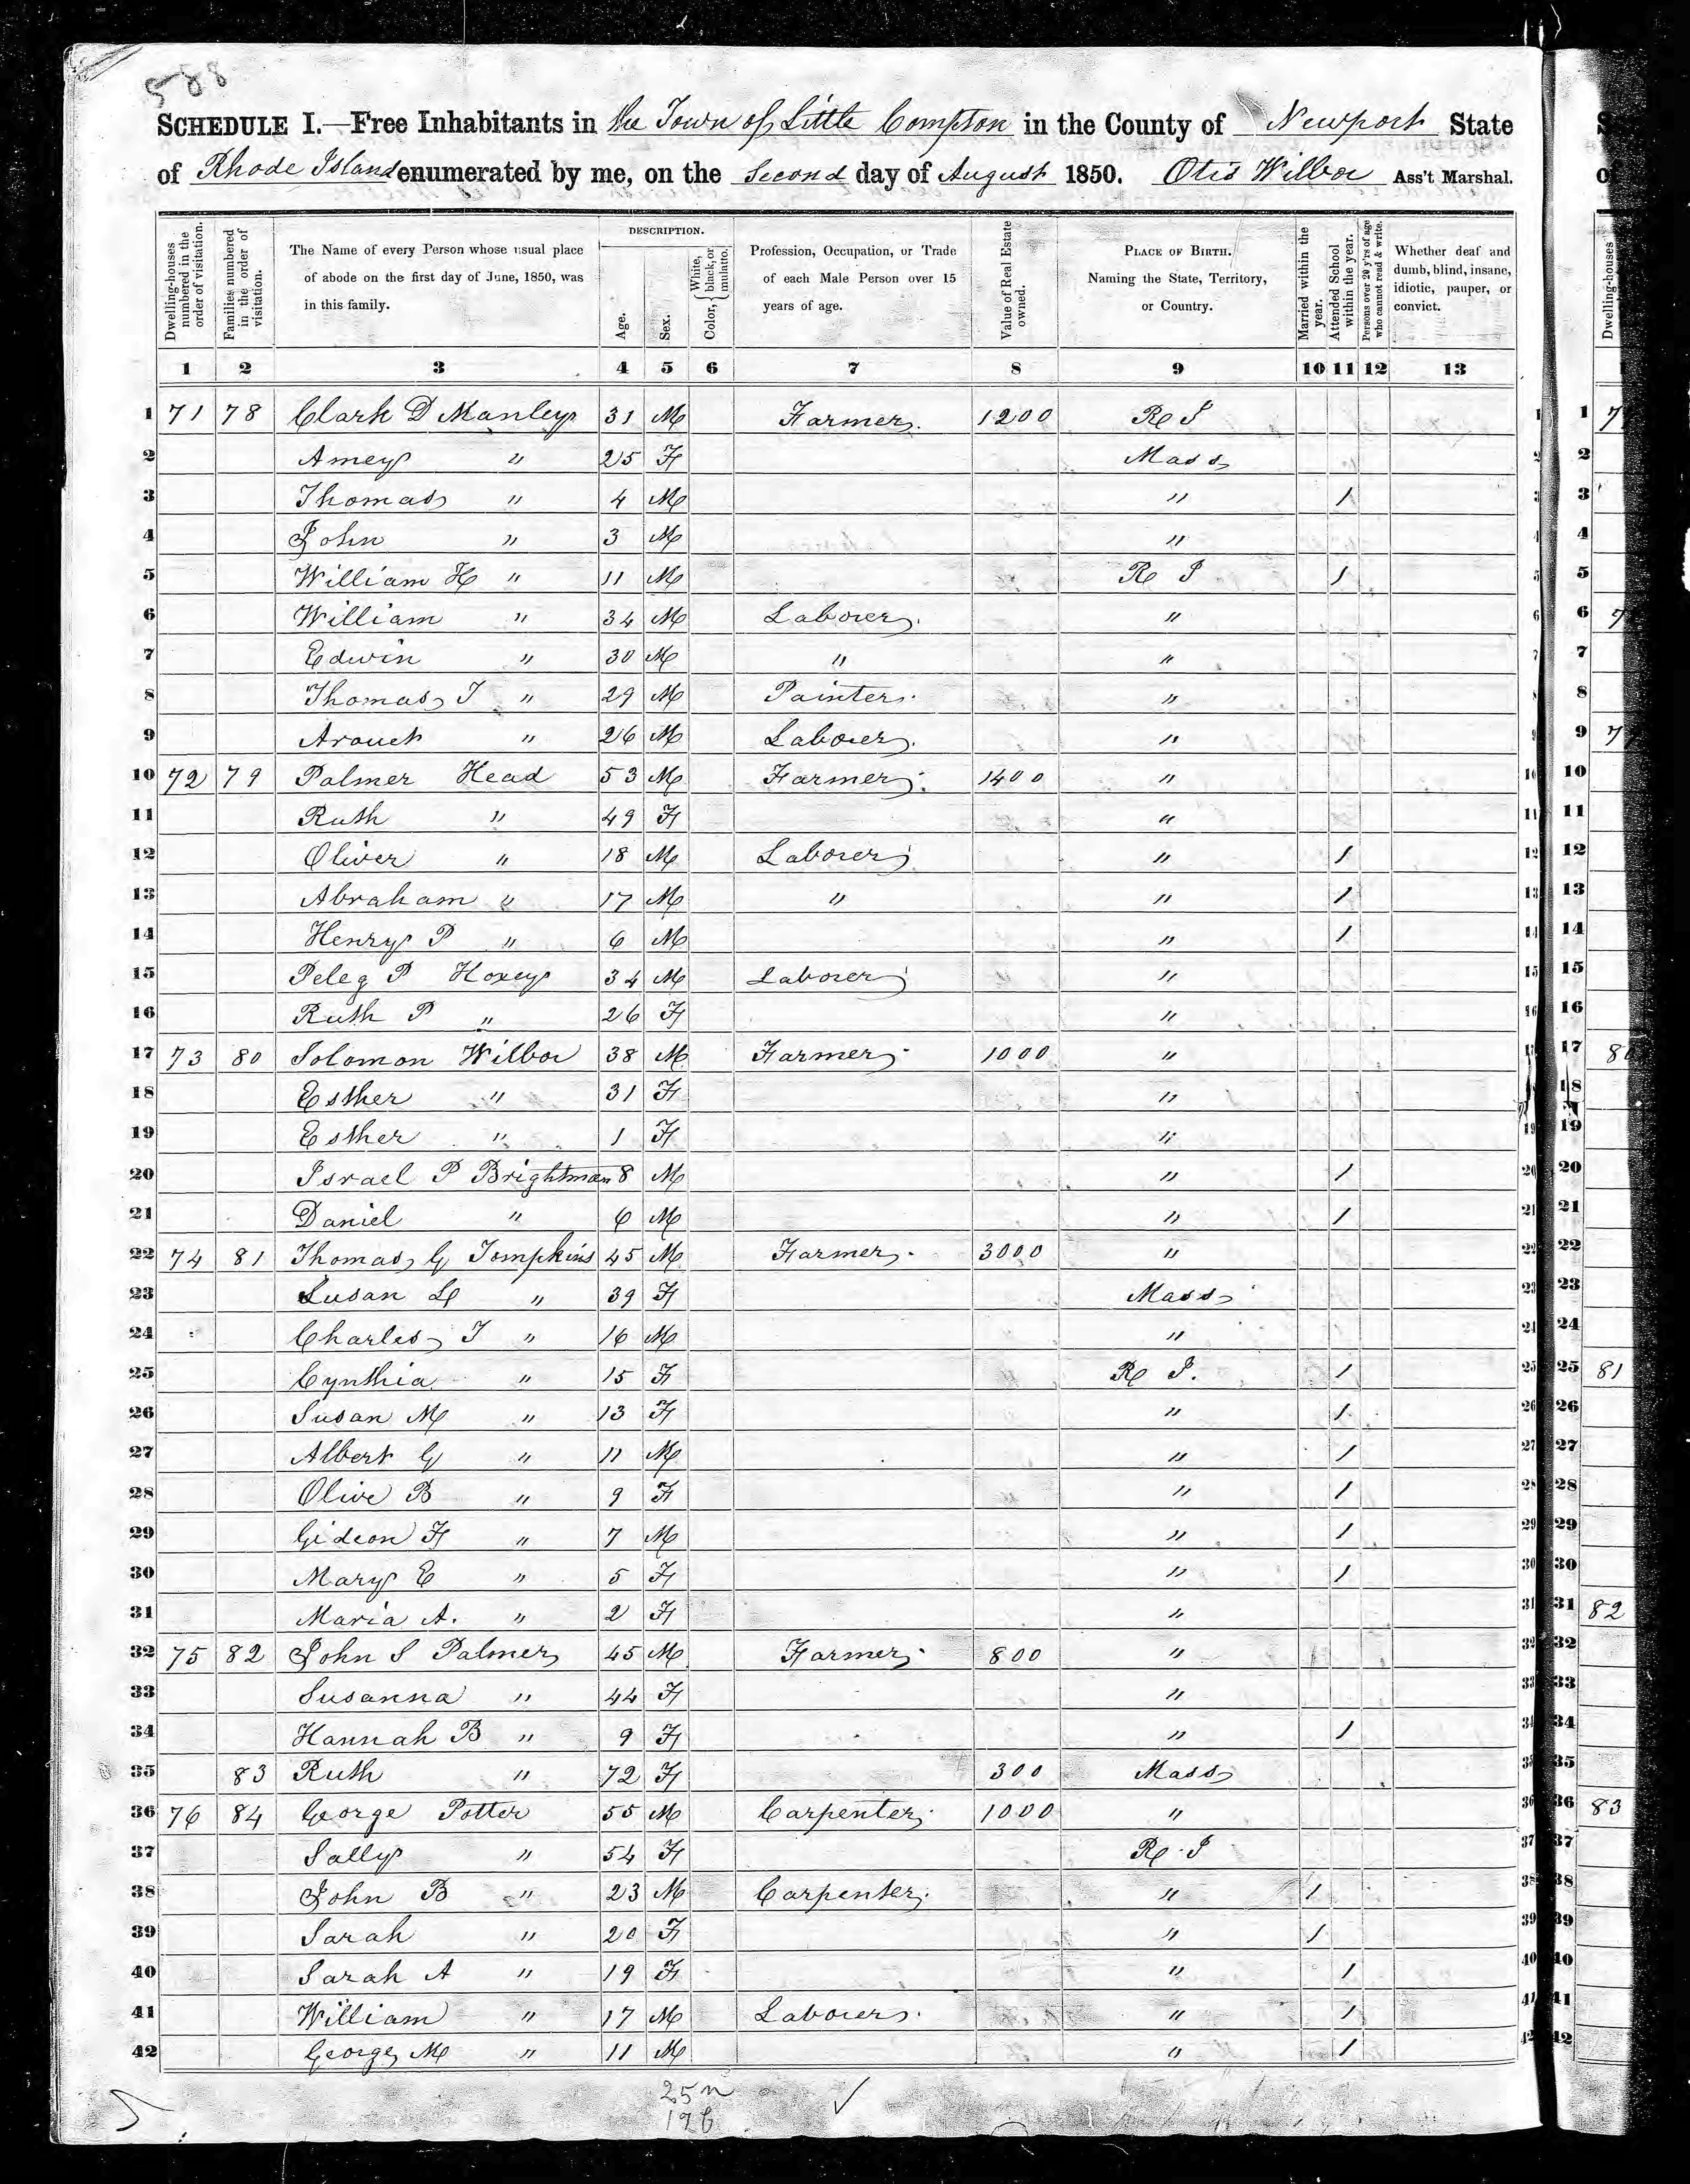 588
SCHEDULE I.—Free Inhabitants in the Town of Little Compton in the County of Newport State
of Rhode Island enumerated by me, on the Second day of August 1850. Otis Wilbor Ass't Marshal.
Dwelling-houses numbered in the order of visitation.
Families numbered in the order of visitation.
The Name of every Person whose usual place of abode on the first day of June, 1850, was in this family.
DESCRIPTION.
Age.
Sex.
Color, { White, black, or mulatto.
Profession, Occupation, or Trade of each Male Person over 15 years of age.
Value of Real Estate owned.
PLACE OF BIRTH. Naming the State, Territory, or Country.
Married within the year.
Attended School within the year.
Persons over 20 y'rs of age who cannot read & write.
Whether deaf and dumb, blind, insane, idiotic, pauper, or convict.
Dwelling-houses
1 2 3 4 5 6 7 8 9 10 11 12 13
1 71 78 Clark D Manley 31 M Farmer. 1200 R I 1
2 Amey " 25 F Mass 2
3 Thomas " 4 M " / 3
4 John " 3 M " 4
5 William H " 11 M R I / 5
6 William " 34 M Laborer. " 6
7 Edwin " 30 M " " 7
8 Thomas J " 29 M Painter. " 8
9 Arouet " 26 M Laborer. " 9
10 72 79 Palmer Head 53 M Farmer. 1400 " 10
11 Ruth " 49 F " 11
12 Oliver " 18 M Laborer " / 12
13 Abraham " 17 M " " / 13
14 Henry P " 6 M " / 14
15 Peleg P Hoxey 34 M Laborer " 15
16 Ruth P " 26 F " 16
17 73 80 Solomon Wilbor 38 M Farmer 1000 " 17
18 Esther " 31 F " 18
19 Esther " 1 F " 19
20 Israel P Brightman 8 M " / 20
21 Daniel " 6 M " / 21
22 74 81 Thomas G Tompkins 45 M Farmer. 3000 " 22
23 Susan L " 39 F Mass 23
24 Charles T " 16 M " 24
25 Cynthia " 15 F R I. / 25 81
26 Susan M " 13 F " / 26
27 Albert G " 11 M " / 27
28 Olive B " 9 F " / 28
29 Gideon F " 7 M " / 29
30 Mary E " 5 F " / 30
31 Maria A. " 2 F " 31 82
32 75 82 John S Palmer 45 M Farmer. 800 " 32
33 Susanna " 44 F " 33
34 Hannah B " 9 F " / 34
35 83 Ruth " 72 F 300 Mass 35
36 76 84 George Potter 55 M Carpenter. 1000 " 36 83
37 Sally " 54 F R I 37
38 John B " 23 M Carpenter. " / 38
39 Sarah " 20 F " / 39
40 Sarah A " 19 F " / 40
41 William " 17 M Laborer. " / 41
42 George M " 11 M " / 42
25 m
176